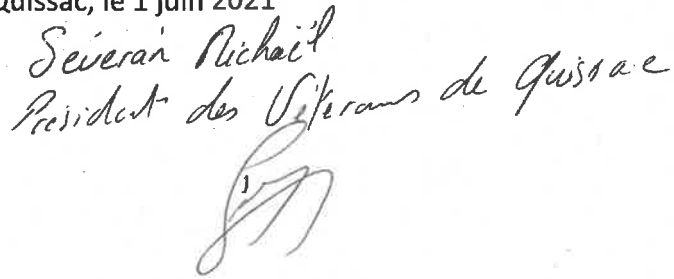 Quissac, le 1 juin 2021
Séveran Michaël
Président des Vétérans de Quissac